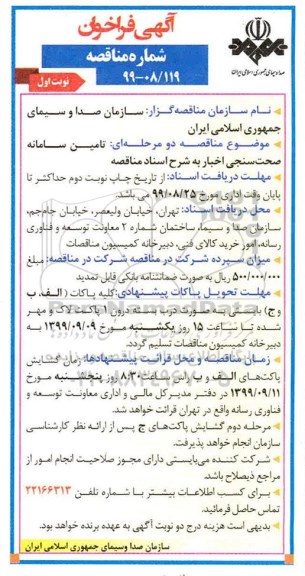 آگهی فراخوان
شماره مناقصه
۹۹-۰۸/۱۱۹
نوبت اول
صدا و سیمای جمهوری اسلامی ایران
نام سازمان مناقصه‌گزار: سازمان صدا و سیمای
جمهوری اسلامی ایران
موضوع مناقصه دو مرحله‌ای: تامین سامانه
صحت‌سنجی اخبار به شرح اسناد مناقصه
مهلت دریافت اسناد: از تاریخ چاپ نوبت دوم حداکثر تا
پایان وقت اداری مورخ ۹۹/۰۸/۲۵ می باشد.
محل دریافت اسناد: تهران، خیابان ولیعصر، خیابان جام‌جم،
سازمان صدا و سیما، ساختمان شماره ۲ معاونت توسعه و فناوری
رسانه، امور خرید کالای فنی، دبیرخانه کمیسیون مناقصات
میزان سپرده شرکت در مناقصه شرکت در مناقصه: مبلغ
۵۰۰/۰۰۰/۰۰۰ ریال به صورت ضمانتنامه بانکی قابل تمدید
مهلت تحویل پاکات پیشنهادی: کلیه پاکات (الف، ب
و ج) بایستی به صورت درب بسته درون ۱ پاکت لاک و مهر
شده تا ساعت ۱۵ روز یکشنبه مورخ ۱۳۹۹/۰۹/۰۹ به
دبیرخانه کمیسیون مناقصات تسلیم گردد.
زمان مناقصات و محل قرائت پیشنهادها: زمان گشایش
پاکت‌های الف و ب راس ساعت ۸:۳۰ روز پنجشنبه مورخ
۱۳۹۹/۰۹/۱۱ در دفتر مدیرکل مالی و اداری معاونت توسعه و
فناوری رسانه واقع در تهران قرائت خواهد شد.
مرحله دوم گشایش پاکت‌های ج پس از ارائه نظر کارشناسی
سازمان انجام خواهد پذیرفت.
شرکت کننده می‌بایستی دارای مجوز صلاحیت انجام امور از
مراجع ذیصلاح باشد.
برای کسب اطلاعات بیشتر با شماره تلفن ۲۲۱۶۶۳۱۳
تماس حاصل فرمائید.
بدیهی است هزینه درج دو نوبت آگهی به عهده برنده خواهد بود.
سازمان صدا وسیمای جمهوری اسلامی ایران